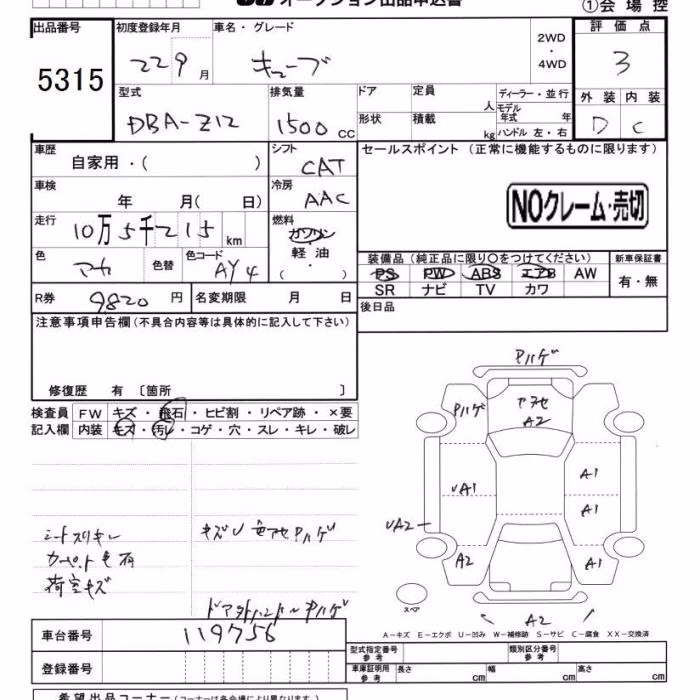 オークション出品申込書
①会場控
出品番号
5315
初度登録年月
22 9月
車名・グレード
キューブ
2WD
・
4WD
評価点
3
外装 内装
D C
型式
DBA-Z12
排気量
1500 cc
ドア
定員
人
ディーラー・並行
モデル年式 年
形状
積載
kg
ハンドル 左・右
車歴
自家用・( )
シフト
CAT
セールスポイント (正常に機能するものに限ります)
車検
年 月( 日)
冷房
AAC
NOクレーム・売切
走行
10万5千215km
燃料
ガソリン
軽油
( ・ )
色
アカ
色替
色コード
AY4
装備品 (純正品に限り○をつけてください)
新車保証書
PS PW ABS エアB AW
有・無
SR ナビ TV カワ
R券
9820 円
名変期限 月 日
後日品
注意事項申告欄(不具合内容等は具体的に記入して下さい)
修復歴 有 〔箇所 〕
検査員
記入欄
FW キズ・飛石・ヒビ割・リペア跡・×要
内装 キズ・汚レ・コゲ・穴・スレ・キレ・破レ
Pハゲ
Pハゲ
アセ
A2
UA1
A1
A1
UA2
A2
A1
A2
スペア
シートスリキレ
カーペット毛有
荷室キズ
キズU 色アセPハゲ
ドア外ハンドルPハゲ
A-キズ E-エクボ U-凹み W-補修跡 S-サビ C-腐食 XX-交換済
車台番号
119756
登録番号
型式指定番号
参考
類別区分番号
参考
車庫証明用
参考
長さ cm
幅 cm
高さ cm
希望出品コーナー (コーナーは各会場により異なります。)